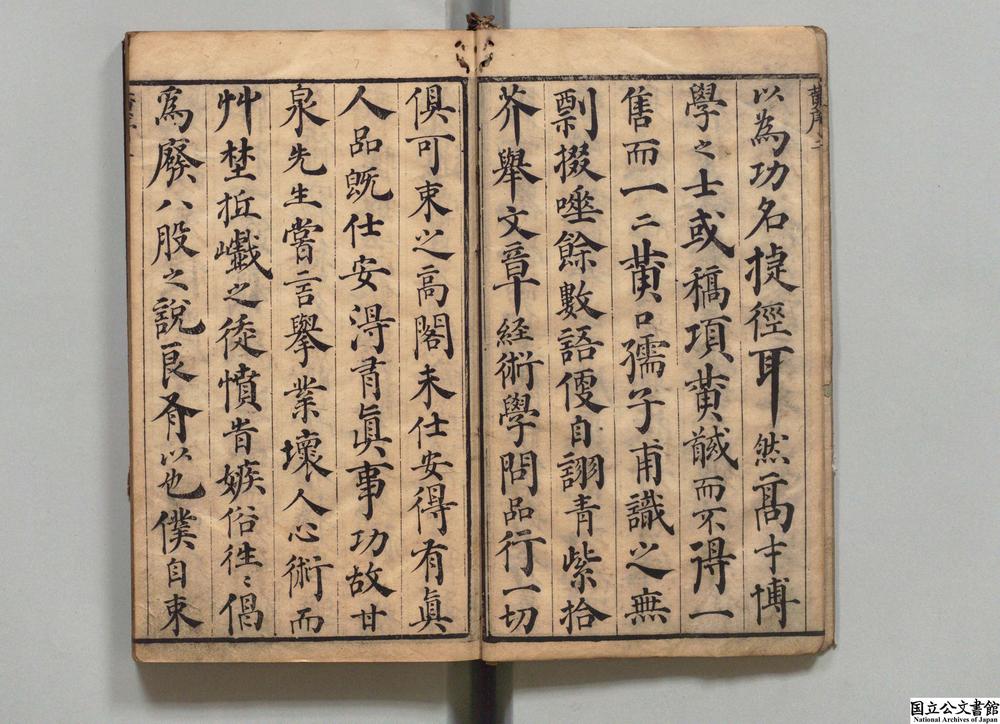 以為功名捷徑耳然高才博
學之士或稿項黄馘而不得一
售而一二黄口孺子甫識之無
剽掇唾餘數語便自詡青紫拾
芥舉文章経術學問品行一切
俱可束之高閣未仕安得有眞
人品既仕安淂有眞事功故甘
泉先生嘗言舉業壞人心術而
艸埜抵巇之徒憤時嫉俗徃〻倡
為廢八股之說良有以也僕自束
黄序 二
国立公文書館
National Archives of Japan